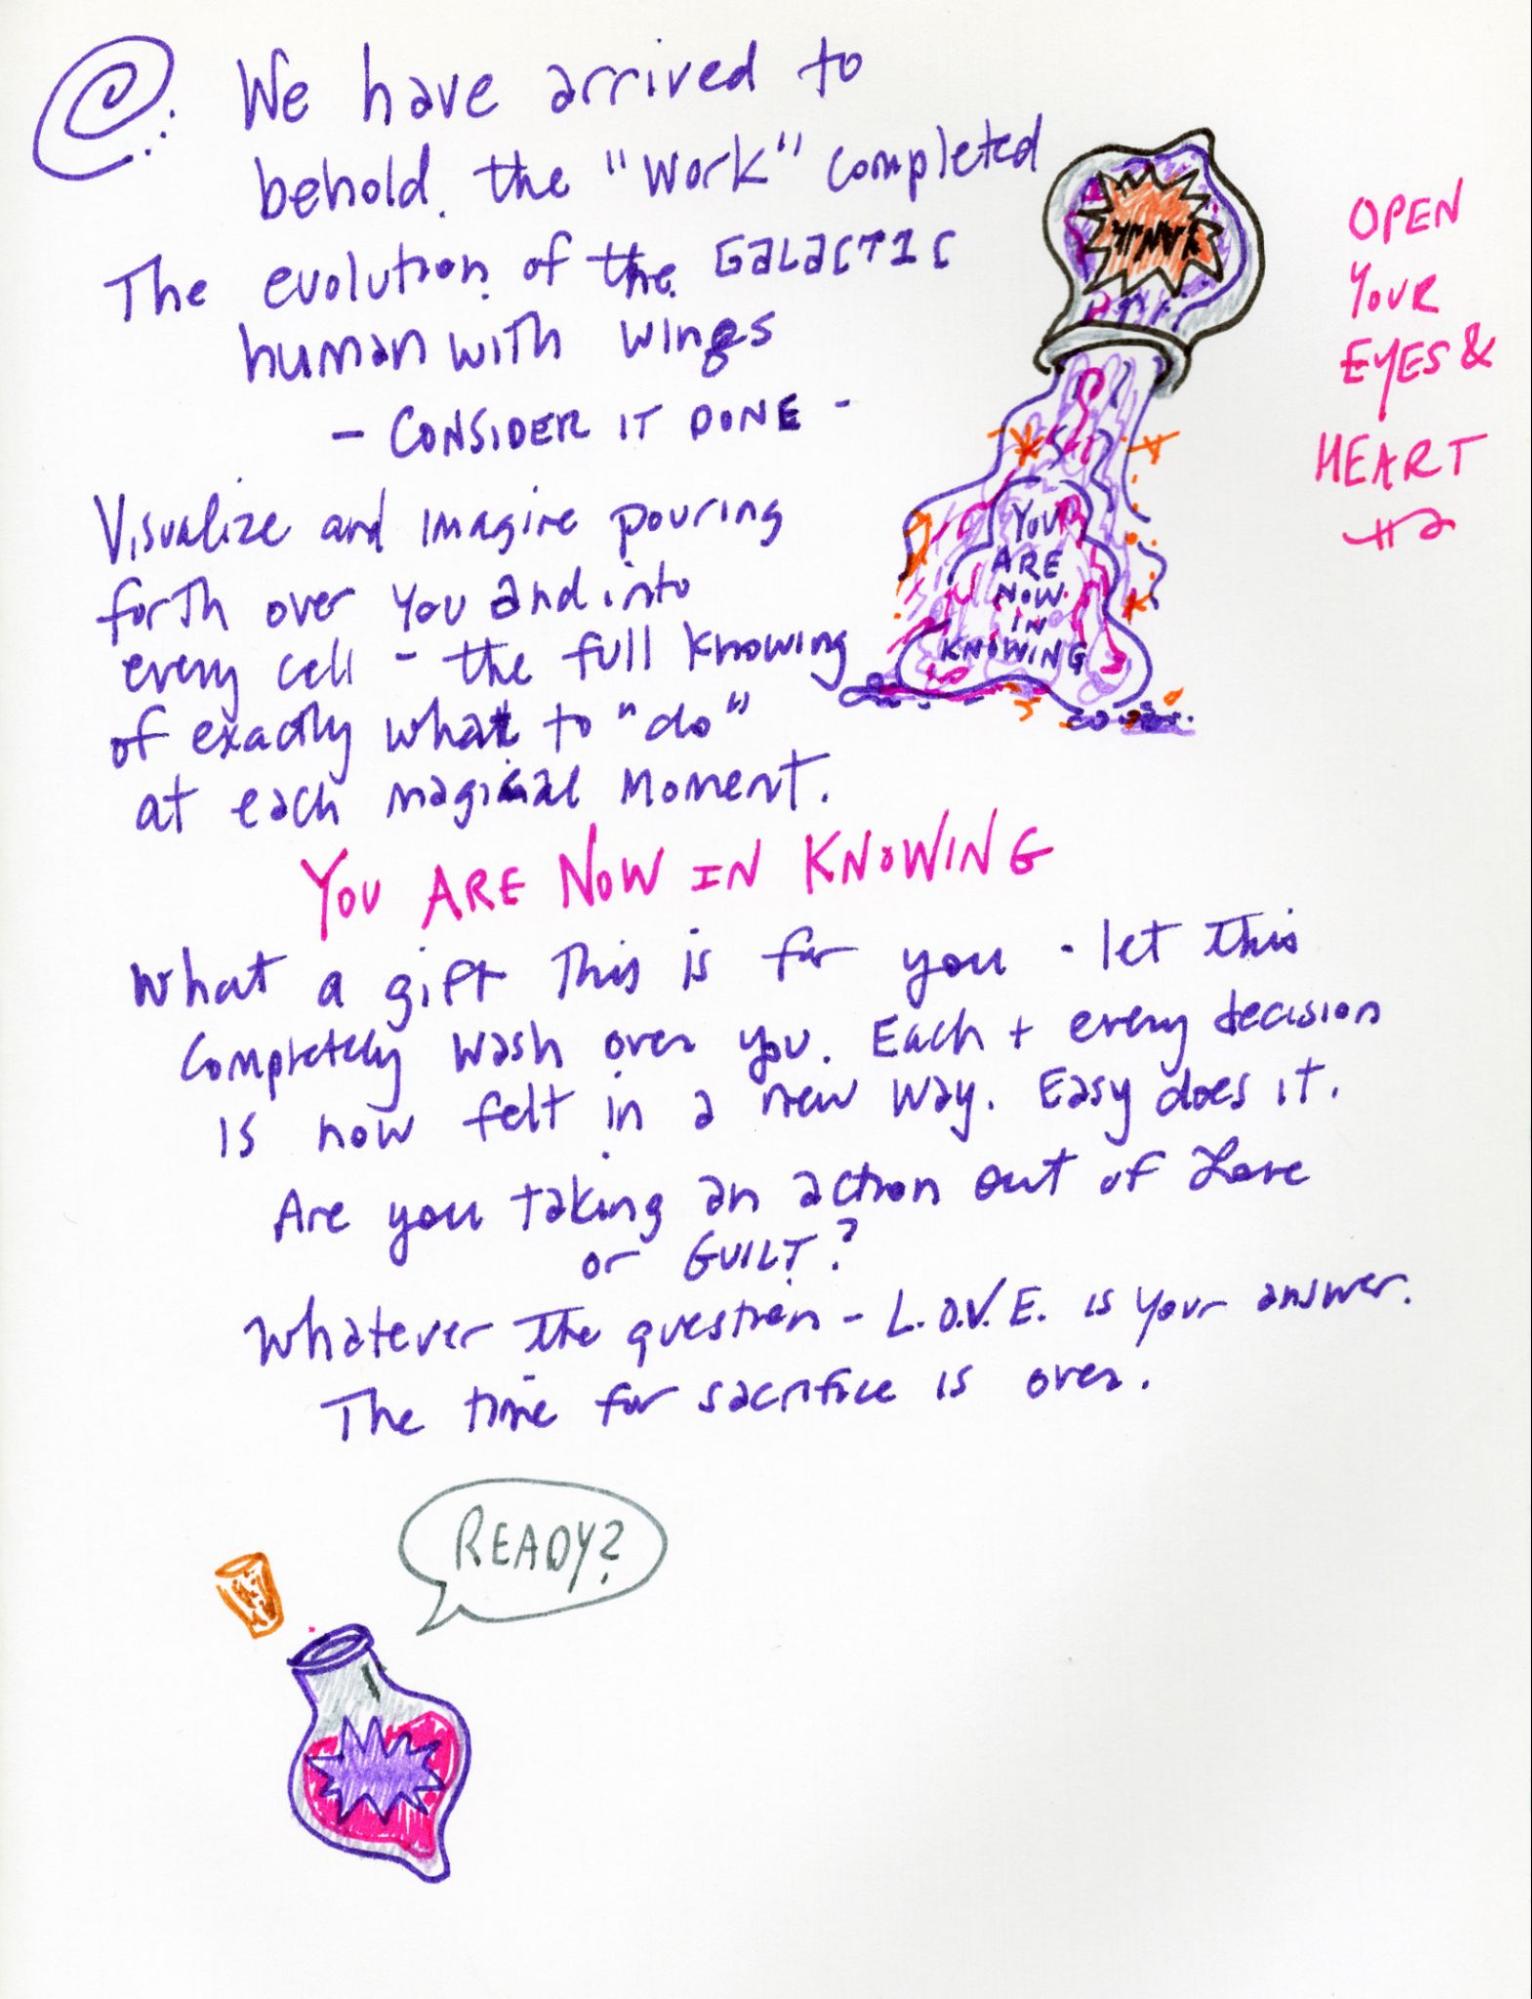 We have arrived to
behold. the "Work" completed
The evolution of the GALACTIC
human with wings
- CONSIDER IT DONE -
Visualize and imagine pouring
forth over You and into
every cell - the full knowing
of exactly what to "do"
at each magical moment.
YOU ARE NOW IN KNOWING
OPEN
YOUR
EYES &
HEART
YOU ARE NOW IN KNOWING
What a gift This is for you - let this
Completely wash over you. Each + every decision
is now felt in a new way. Easy does it.
Are you taking an action out of Love
or GUILT?
Whatever the question - L.O.V.E. is your answer.
The time for sacrifice is over.
READY?